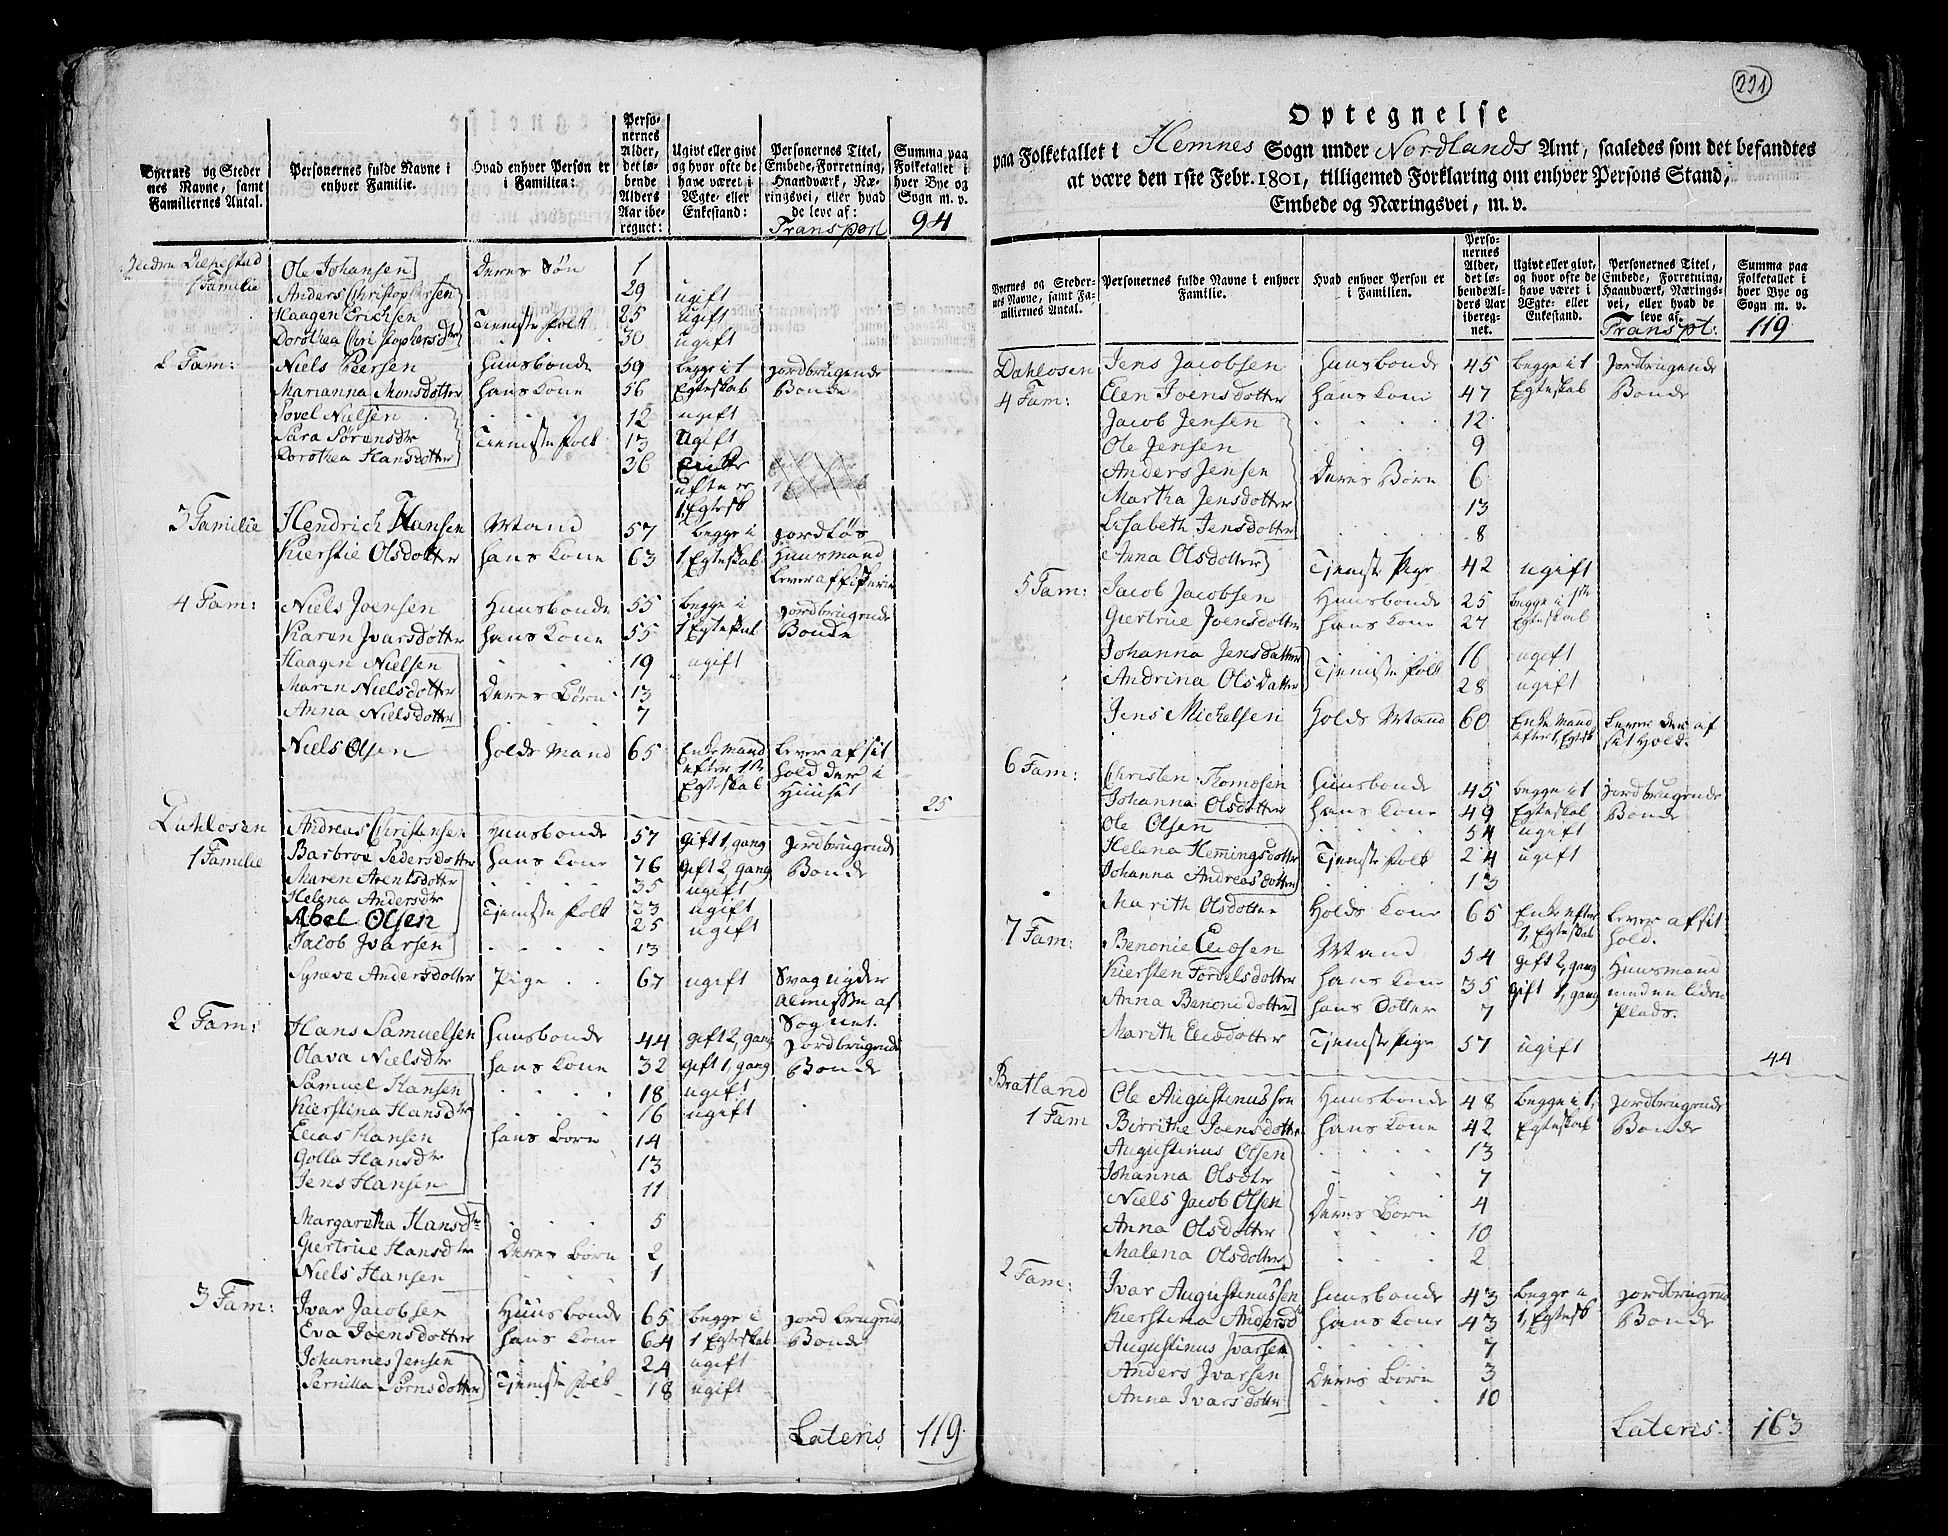 Byernes og Steder
nes Navne, samt
Familiernes Antal.
Personernes fulde Navne i
enhver Familie.
Hvad enhver Person er
i Familien:
Perso-
nernes
Alder,
det lø-
bende
Alders
Aar ibe-
regnet:
Ugivt eller givt
og hvor ofte de
have været i
Ægte- eller
Enkestand:
Personernes Titel,
Embede, Forretning,
Haandværk, Næ-
ringsvei, eller hvad
de leve af:
Transport
Summa paa
Folketallet i
hver Bye og
Sogn m. v.
94
1 Familie Ole Johansen Deres Søn 1
Anders Christophersen 29 ugift
Haagen Erichsen Tieniste Folk 25 ugift
Dorothea Christophersdtr 30 ugift
2 Fam: Niels Peersen Huusbonde 59 begge i 1 jordbrugende
Marianna Monsdotter hans Kone 56 Egteskab Bonde
Povel Nielsen 12 ugift
Sara Sørensdtr Tieniste Folk 13 ugift
Dorothea Hansdotter 36 Enke
efter
1 Egtesk
3 Familie Hendrich Hansen Mand 57 begge i jordløs
Kierstie Olsdotter hans Kone 63 1, Egteskab Huusmand
lever af fiskerie
4 Fam: Niels Joensen Huusbonde 55 begge i jordbrugende
Karen Ivarsdotter hans Kone 55 1 Egteskab Bonde
Haagen Nielsen 19 ugift
Maren Nielsdotter Deres Børn 13
Anna Nielsdotter 7
Niels Olsen Holds Mand 65 Enkemand lever af sit
efter 1ste hold der i
Egteskab Huuset
25
Dahlosen Andreas Christensen Huusbonde 57 Gift 1, gang jordbrugende
1 Familie Barbroe Pedersdotter hans Kone 76 Gift 2, gang Bonde
Maren Arentsdotter 35 ugift
Helena Andersdtr Tjeniste Folk 33 ugift
Abel Olsen 25 ugift
Jacob Ivarsen 13
Synøve Andersdotter Pige 67 ugift Svag nyder
Almisse af
Sognet.
2 Fam: Hans Samuelsen Huusbonde 44 gift 2, gang jordbrugende
Olava Nielsdtr hans Kone 32 gift 1, gang Bonde
Samuel Hansen 18 ugift
Kierstina Hansdtr 16 ugift
Elias Hansen hans Børn 14
Golla Hansdtr 13
Jens Hansen 11
Margaretha Hansdtr 5
Giertrue Hansdtr Deres Børn 2
Niels Hansen 1
3 Fam: Ivar Jacobsen Huusbonde 65 begge i jordbrugende
Eva Joensdotter hans Kone 64 1 Egteskab Bonde
Johannes Jensen 24 ugift
Pernilla Sørnsdotter Tjeniste Folk 18 ugift
Lateris 119.
221
Optegnelse
paa Folketallet i Hemnes Sogn under Nordlands Amt, saaledes som det befandtes
at være den 1ste Febr. 1801, tilligemed Forklaring om enhver Persons Stand,
Embede og Næringsvei, m. v.
Byernes og Steder-
nes Navne, samt Fa-
miliernes Antal.
Personernes fulde Navne i enhver
Familie.
Hvad enhver Person er
i Familien.
Perso-
nernes
Alder,
det lø-
bende Al-
ders Aar
ibereg-
net.
Ugivt eller givt,
og hvor ofte de
have været i
Ægte- eller
Enkestand.
Personernes Titel,
Embede, Forretning,
Haandværk, Nærings-
vei, eller hvad de
leve af.
Transpt:
Summa paa
Folketallet i
hver Bye og
Sogn m. v.
119
Dahlosen Jens Jacobsen Huusbonde 45 begge i 1 jordbrugende
4 Fam: Elen Joensdotter hans Kone 47 Egteskab Bonde
Jacob Jensen 12
Ole Jensen 9
Anders Jensen Deres Børn 6
Martha Jensdotter 13
Lisabeth Jensdotter 8
Anna Olsdotter Tjeniste Pige 42 ugift
5 Fam: Jacob Jacobsen Huusbonde 25 begge i 1ste
Giertrue Joensdotter hans Kone 27 Egteskab
Johanna Jensdatter Tjeniste Folk 16 ugift
Andrina Olsdatter 28 ugift
Jens Michelsen Holds Mand 60 Enkemand lever der af
efter 1, Egtesk sit Hold.
6 Fam: Christen Thomesen Huusbonde 45 begge i 1 jordbrugende
Johanna Olsdotter hans Kone 49 Egteskab Bonde
Ole Olsen 54 ugift
Helena Hemmingsdotter Tjeniste Folk 24 ugift
Johanna Andreasdotter 13
Marith Olsdotter Holds Kone 65 Enke efter lever af sit
1, Egteskab hold.
7 Fam: Benonie Eliasen Mand 54 gift 2, gang Huusmand
Kiersten Tordelsdotter hans Kone 35 gift 1, gang med en liden
Anna Benonidotter hans Dotter 7 Plads.
Marith Eliasdotter Tjeniste Pige 57 ugift
44
Bratland Ole Augustinussen Huusbonde 48 begge i 1, jordbrugende
1 Fam Birrithe Joensdotter hans Kone 42 Egteskab Bonde
Augustinus Olsen 13
Johanna Olsdtr 7
Niels Jacob Olsen Deres Børn 4
Anna Olsdotter 10
Malena Olsdotter 2
2 Fam: Ivar Augustinussen Huusbonde 43 begge i jordbrugend
Kierstina Andersd hans Kone 43 1, Egtesk Bonde
Augustinus Ivarsen 7
Anders Ivarsen Deres Børn 3
Anna Ivarsdotter 10
Lateris 163